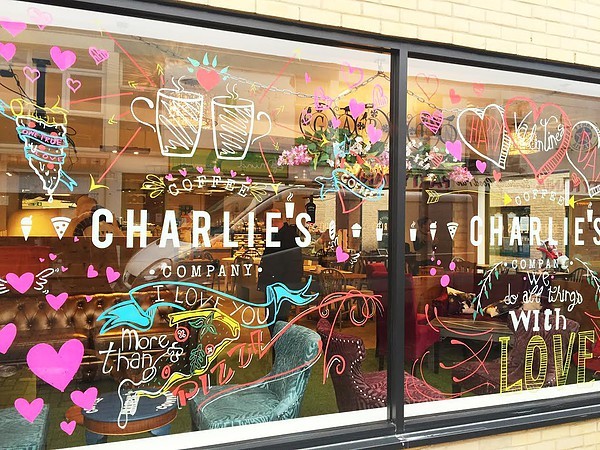 COFFEE
CHARLIE'S
COMPANY
I LOVE YOU
more
than
PIZZA
HAPPY Valentines DAY
COFFEE
CHARLIE'S
COMPANY
We
do all things
WITH
LOVE